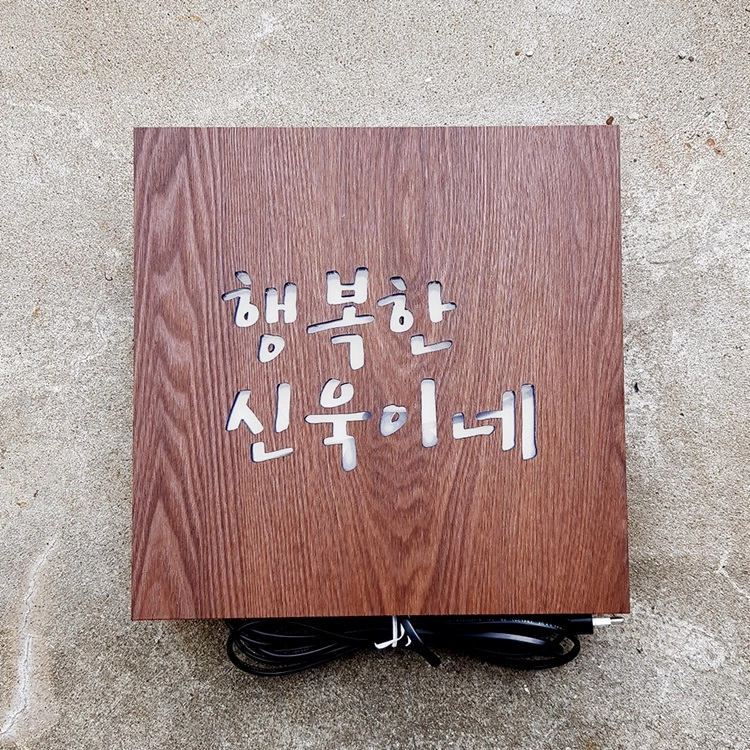 행복한
신욱이네